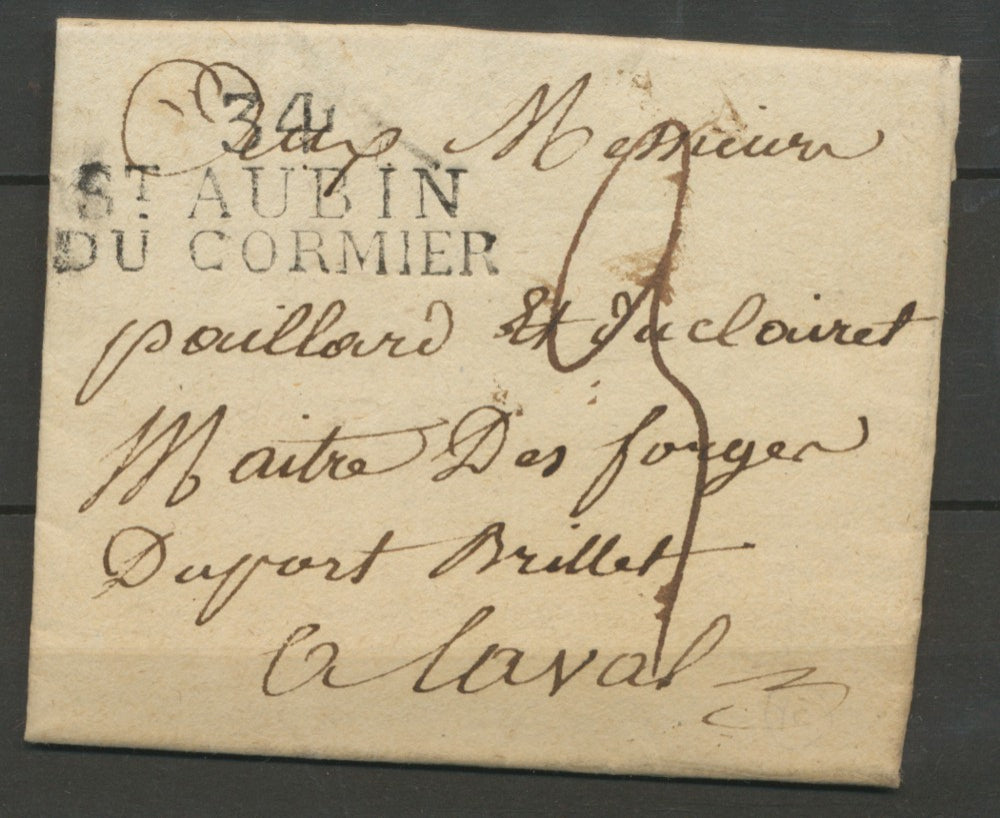 34
Aux Messieurs
ST AUBIN
DU CORMIER
paillard Et Duclairet
Maitre Des forger
Duport Brillet
a laval
3